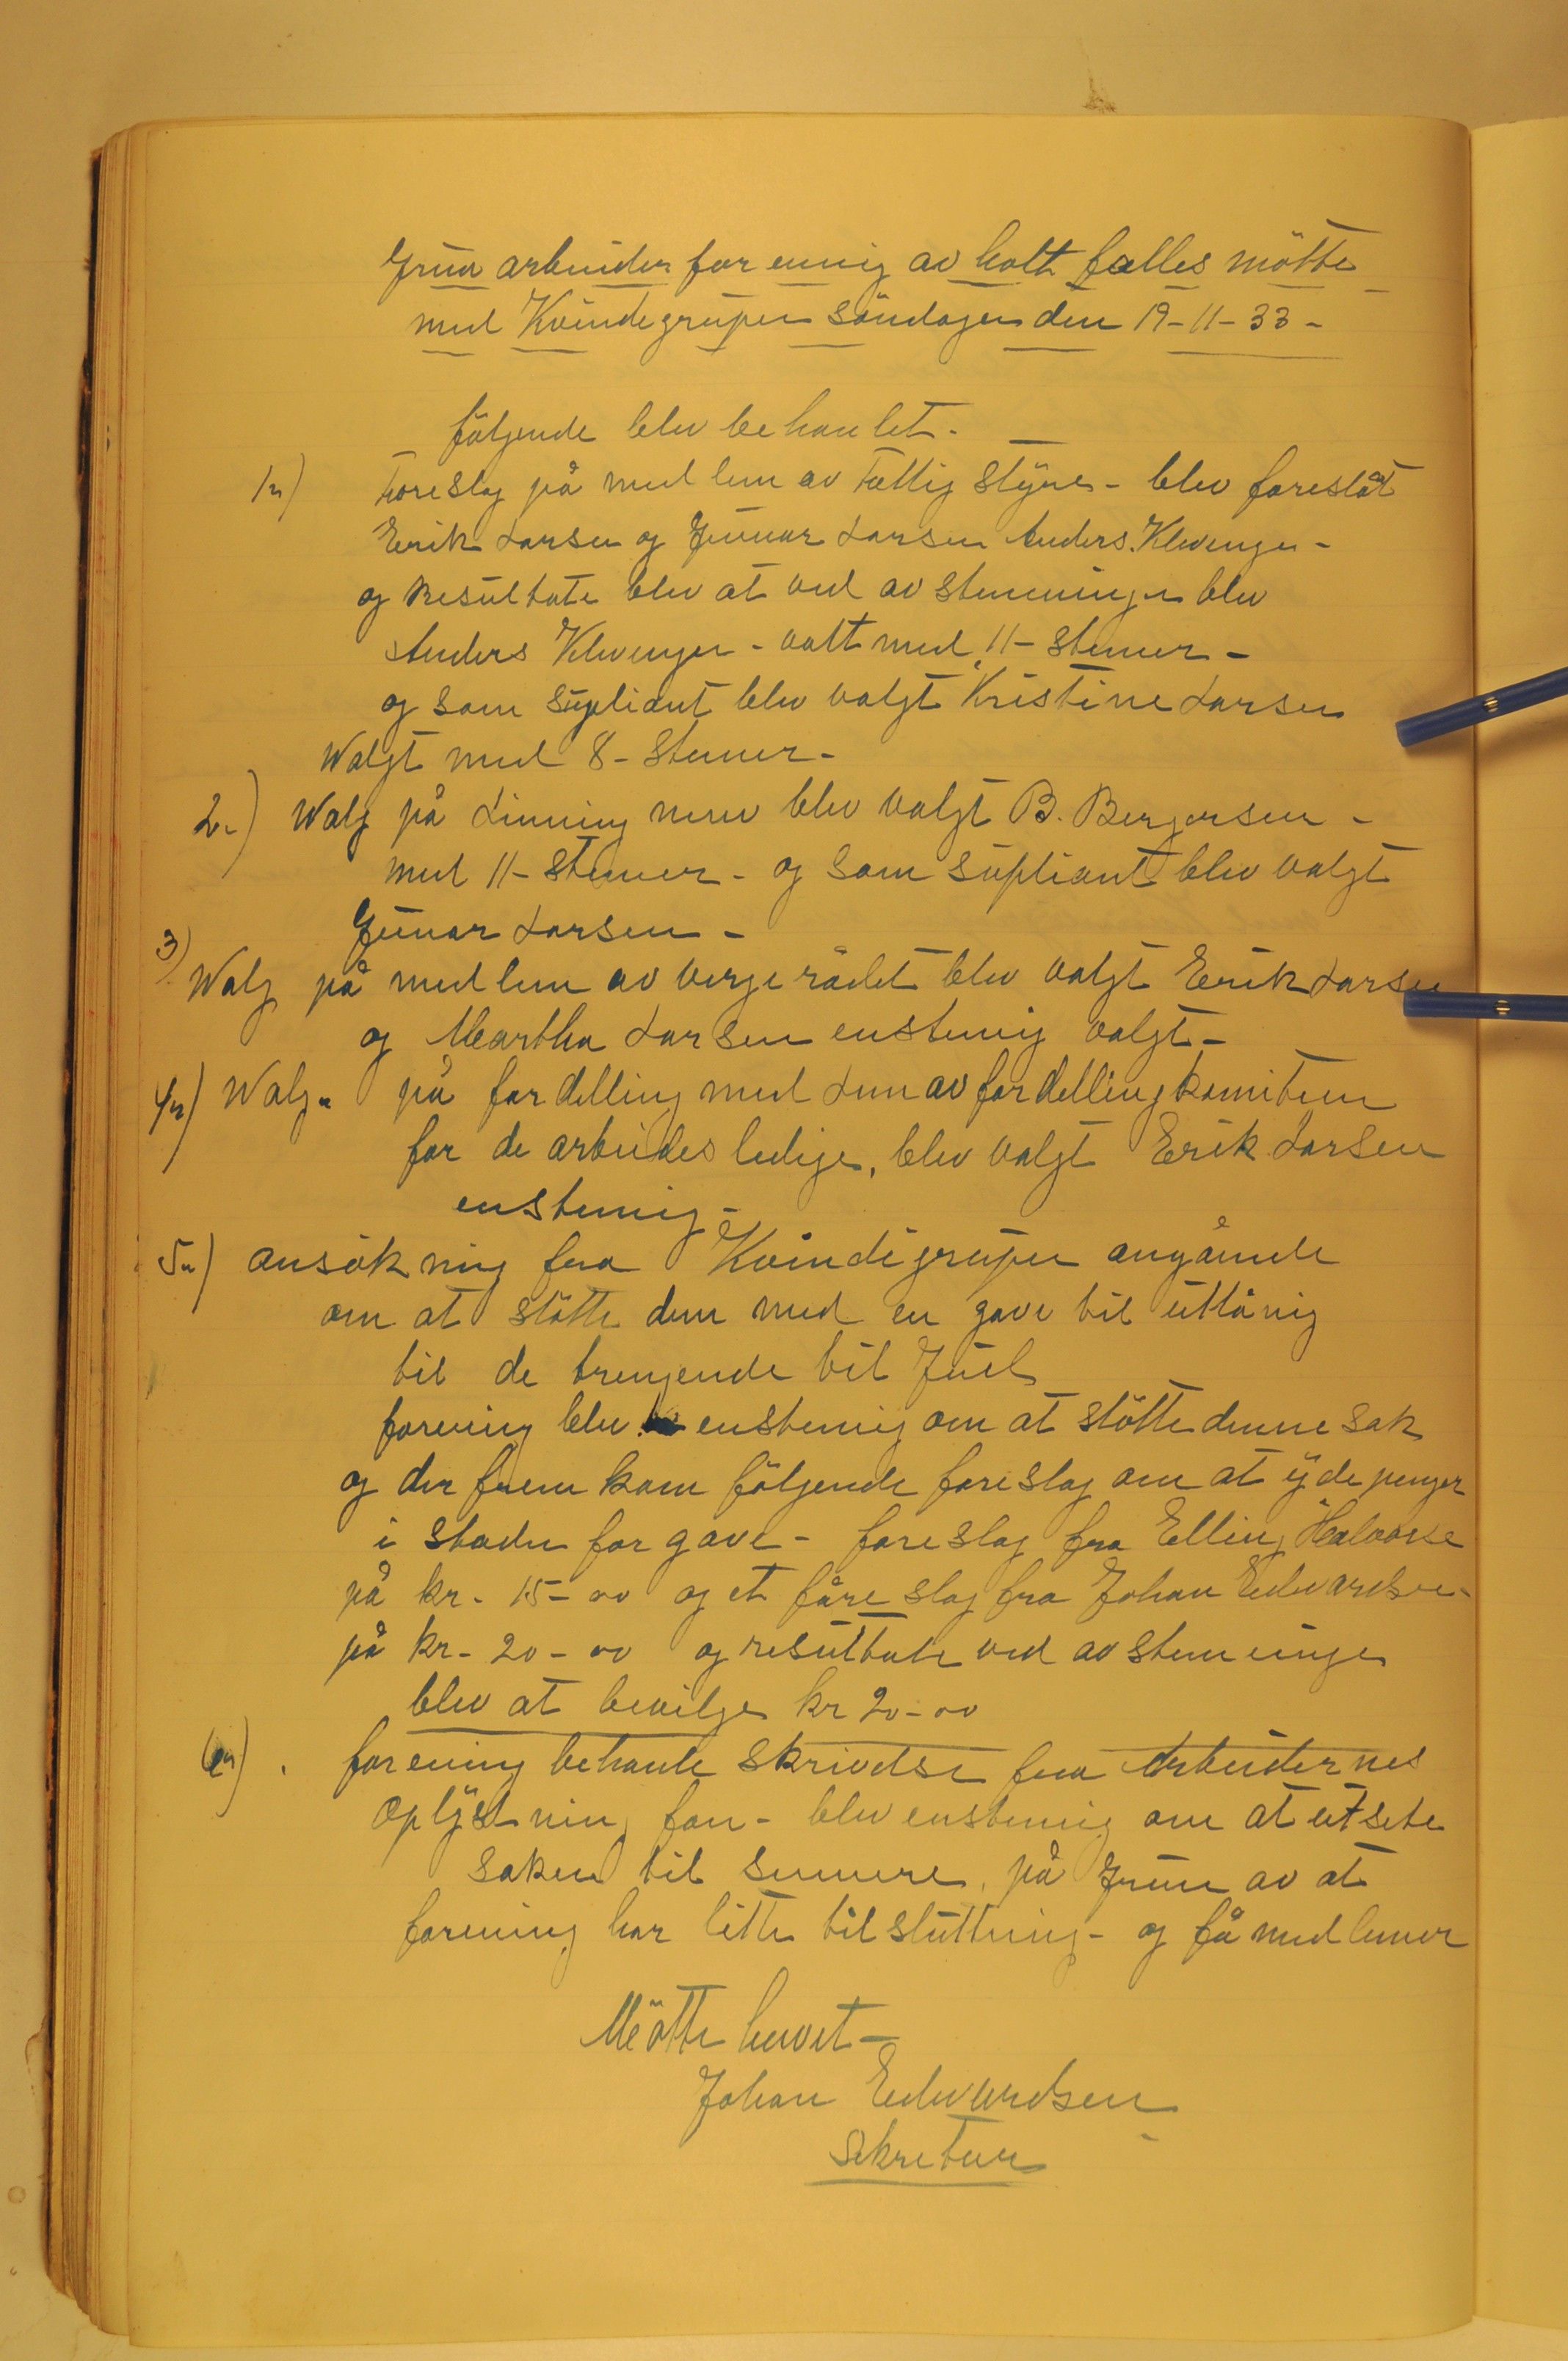 Grua arbeider forening av holt fælles mötte
med Kvindegrupen söndagen den 19-11-33-
fölgende blev behanlet.
1n) Foreslag på medlem av Fattig Styre - blev foreslåt
Erik Larsen og Gunar Larsen Anders Klevengen -
og Resultate blev at ved avstemningen blev
Anders Klevengen - valt med 11 - stemer -
og som supliant blev valgt Kristine Larsen
Walgt med 8 - Stemer -
2-) Walg på Linning nevn blev valgt B. Bergersen -
med 11 - stemer - og som supliant blev valgt
Gunar Larsen -
3) Walg på medlem av verge rådet blev valgt Erik Larsen
og Martha Larsen enstemig valgt -
4n) Walg - på fordelling medlem av fordellingkomiteen
for de arbeides ledige, blev valgt Erik Larsen
enstemig -
5n) ansökning fra Kvindegrupen angående
om at stötte dem med en gave til utlånig
til de trengende til Juel
forening blev enstemig om at stötte denne sak
og der frem kom fölgende foreslag om at yde penger
i staden for gave - foreslag fra Elling Halvorse
på kr. 15-00 og et fåreslag fra Johan Edvardsen -
på kr - 20-00 og resultate ved avstemingen
blev at bevilge kr 20-00
6n) forening behanle Skrivelse fra Arbeidernes
Oplystning fon - blev enstemig om at utsete
saken til senere, på grun av at
forening har litte tilsluttning - og få medlemer
Mötte hevet -
Johan Edvardsen
Sekretær